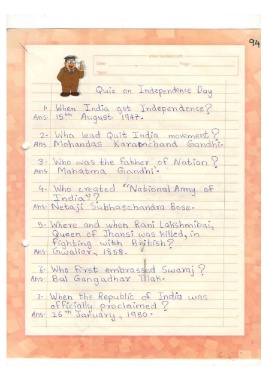 94
Quiz on Independence Day
1- When India got Independence?
Ans- 15th August 1947.
2- Who lead Quit India movement?
Ans- Mohandas Karamchand Gandhi.
3- Who was the Father of Nation?
Ans- Mahatma Gandhi.
4- Who created "National Army of
India"?
Ans- Netaji Subhaschandra Bose.
5- Where and when Rani Lakshmibai,
Queen of Jhansi was killed, in
fighting with British?
Ans- Gwalior, 1858.
6- Who first embrassed Swaraj?
Ans- Bal Gangadhar Tilak.
7- When the Republic of India was
officially proclaimed?
Ans- 26th January, 1950.